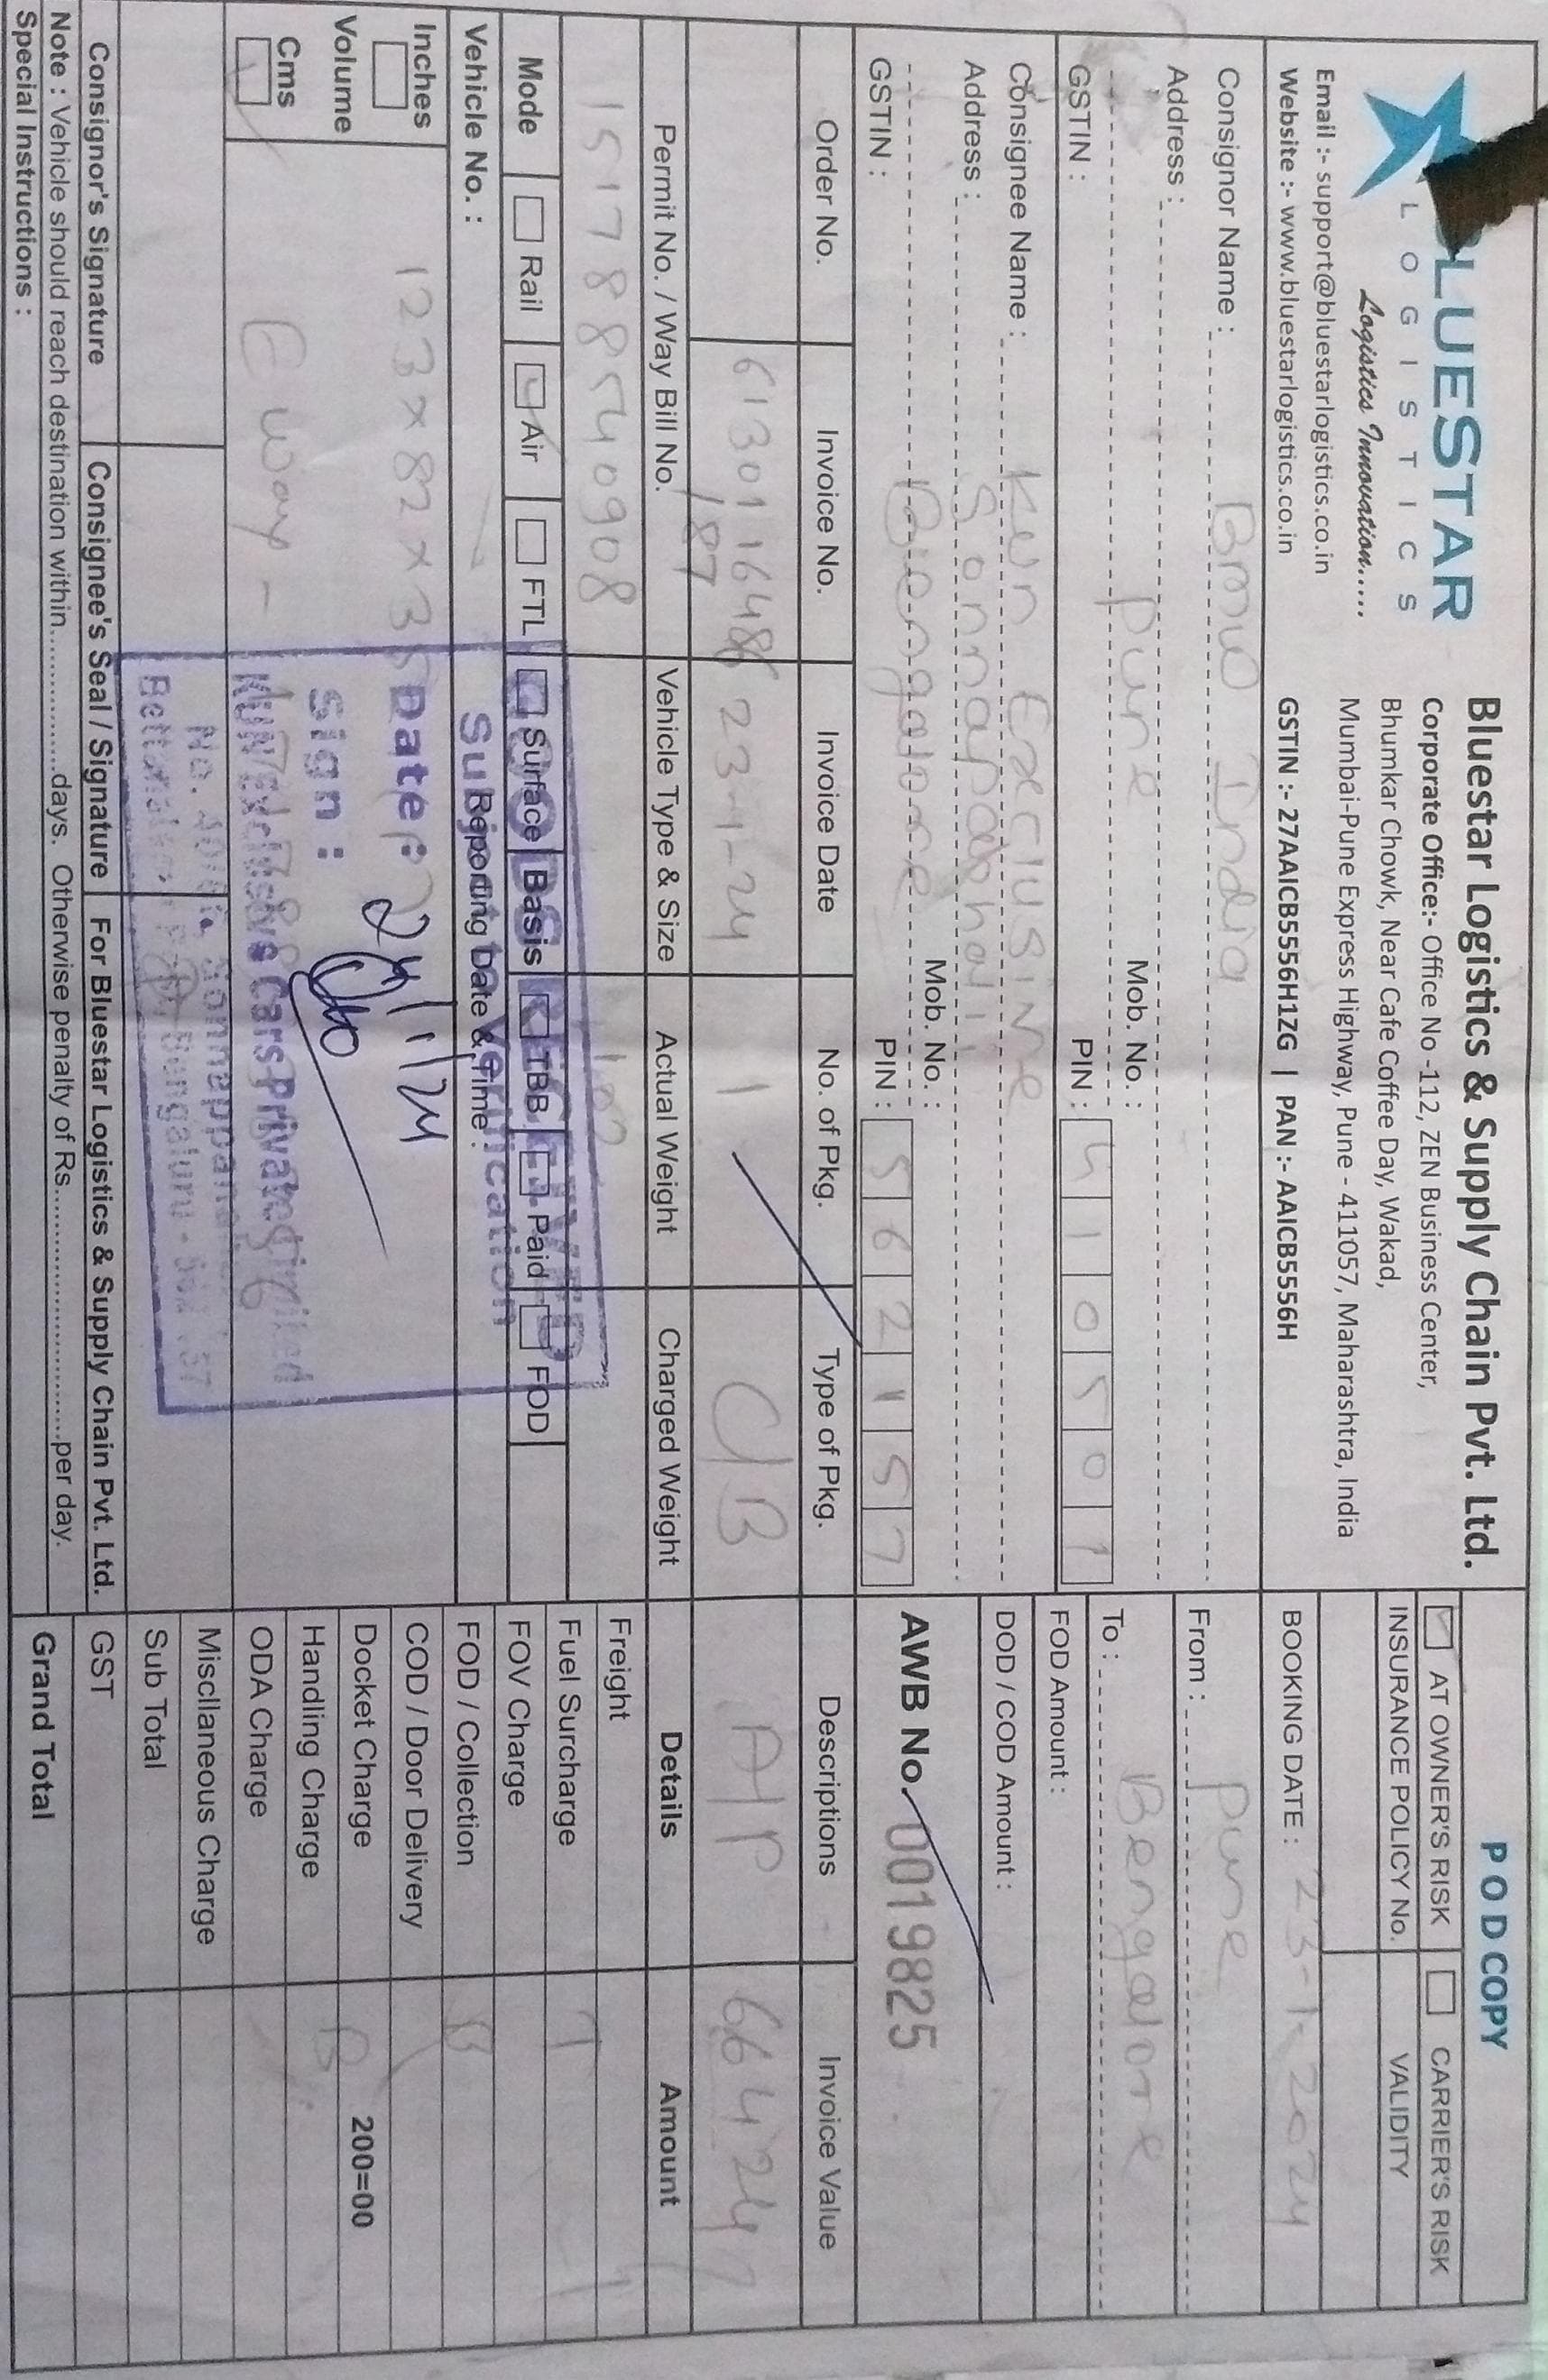 BLUESTAR
LOGISTICS
Logistics Innovation.....
Email :- support@bluestarlogistics.co.in
Website :- www.bluestarlogistics.co.in
Bluestar Logistics & Supply Chain Pvt. Ltd.
Corporate Office:- Office No -112, ZEN Business Center,
Bhumkar Chowk, Near Cafe Coffee Day, Wakad,
Mumbai-Pune Express Highway, Pune - 411057, Maharashtra, India
GSTIN :- 27AAICB5556H1ZG | PAN :- AAICB5556H
POD COPY
AT OWNER'S RISK CARRIER'S RISK
INSURANCE POLICY No. VALIDITY
BOOKING DATE : 23-1-2024
Consignor Name : BMW India
Address :
Pune Mob. No. :
GSTIN : PIN : 410501
From : Pune
To : Bengalore
FOD Amount :
DOD / COD Amount :
Consignee Name : Kun Exclusive
Address :
Bengalore Mob. No. :
GSTIN : PIN : 562157
AWB No. 0019825
Order No. Invoice No. Invoice Date No. of Pkg. Type of Pkg. Descriptions Invoice Value
6130116486 23-1-24 1 C/B A/P 66424
/87
Permit No. / Way Bill No. Vehicle Type & Size Actual Weight Charged Weight Details Amount
151788540908
Mode Rail Air FTL Surface Basis TBB Paid FOD
Vehicle No. : Reporting Date & Time :
Inches
Volume
Cms
123 x 82 x
E way -
GOODS RECEIVED
Subject to Verification
Date : 24/1/24
Sign :
KUN Exclusive Cars Private Limited
Bengaluru
Freight
Fuel Surcharge
FOV Charge
FOD / Collection
COD / Door Delivery
Docket Charge 200=00
Handling Charge
ODA Charge
Miscllaneous Charge
Sub Total
GST
Grand Total
T
B
B
Consignor's Signature Consignee's Seal / Signature For Bluestar Logistics & Supply Chain Pvt. Ltd.
Note : Vehicle should reach destination within.................days. Otherwise penalty of Rs..............................per day.
Special Instructions :